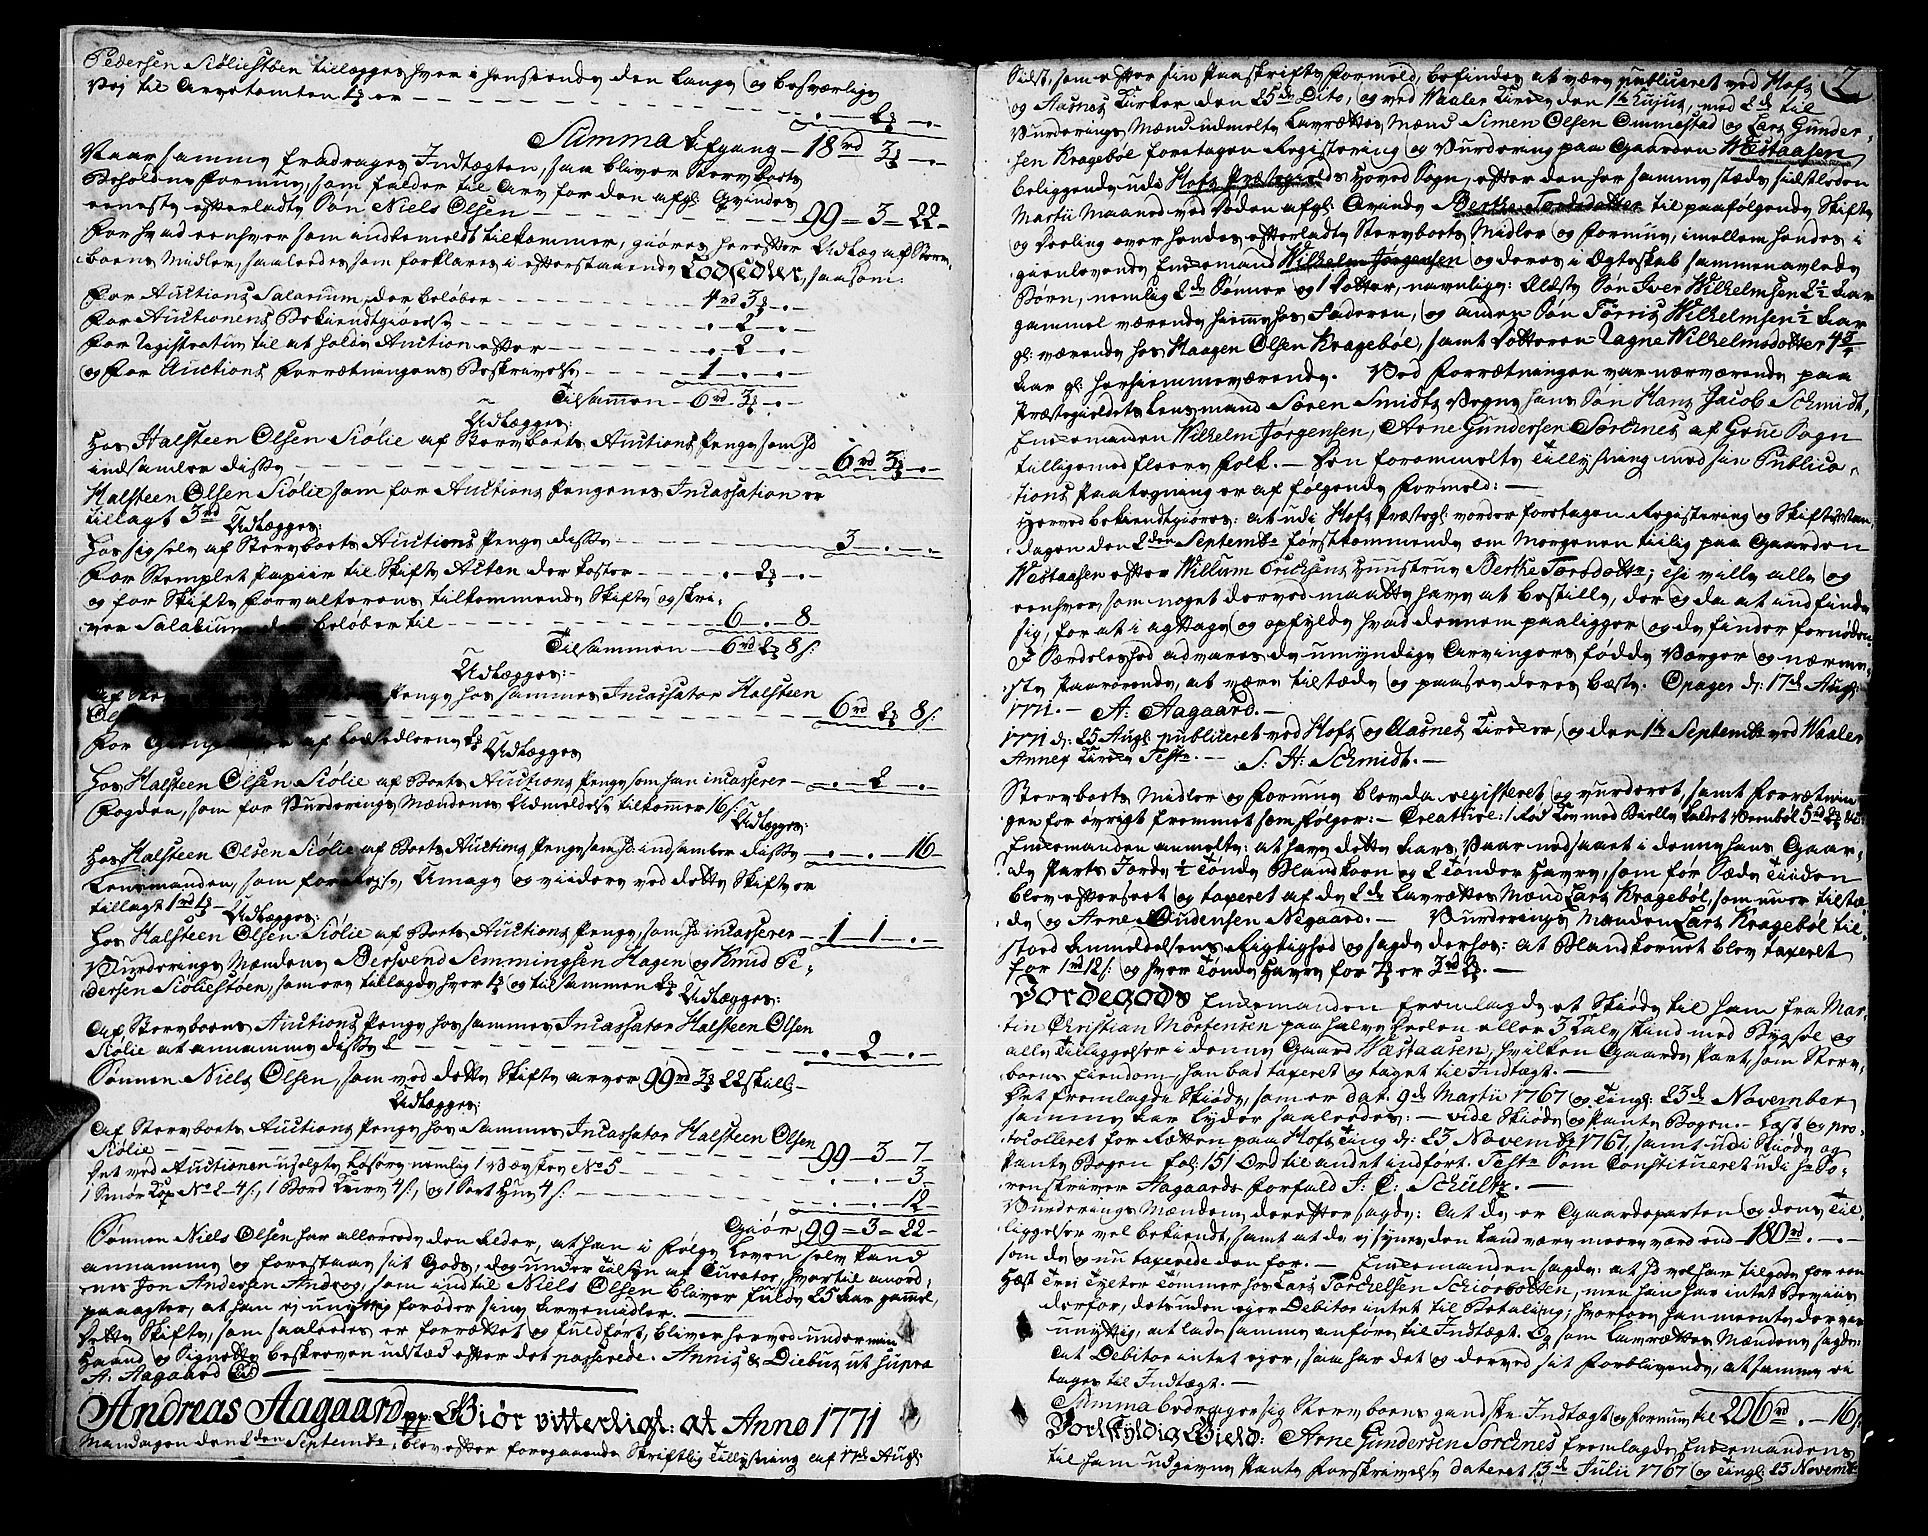 Pedersen Siøliestøen tillægges hver i henseende den lange og besværlige
Vej til Arvetomten 1 ʒ er — — — — — ".— 2 ʒ —.—
Summa Afgang — 18 rd 3 ʒ —.—
Naar samme fradrages Indtægten, saa bliver Sterv Boets
Beholdne Formue, som falder til Arv for den afgl: Qvindes
eeneste efterladte Søn Niels Olsen — — — 99 = 3 = 22 -
For hvad eenhver som anbemeldt tilkommer, giøres herefter Udlæg af Sterv-
boens Midler, saaledes som forklares i efterstaaende Lodsedler, saasom:
For Auctions Salarium, der beløber — — — 4 rd 3 ʒ —.—
For Auctionens Bekiendtgiørelse — — — .— 2 —.—
For Registratur til at holde Auction efter — — .— 2 —.—
og For Auctions Forrætningens Beskrivelse — — 1 —.—.—
Tilsamen — 6 rd 3 ʒ —.—
Udlægges:
Hos Halsteen Olsen Siølie af Stervboets Auctions Penge som hd
indsamler disse — — — 6 rd 3 ʒ —.—
Halsteen Olsen Siølie som for Auctions Pengenes Incassation er
tillagt 3 rd Udlægges:
Hos sig selv af Stervboets Auctions Penge disse — — 3 —.—.—
For Stemplet Papiir til Skifte Acten der koster — — .— 2 ʒ —.—
og for Skifte Forvalterens tilkommende Skifte og skri-
ver Salarium der beløber til — — — 6 —.— 8 -
Tilsammen — 6 rd 2 ʒ 8 s:
Udlægges:-
Af Penge hos sammes Incassator Halsteen
— — — 6 rd 2 ʒ 8 s:
For af Lodsedlerne 2 ʒ Udlægges
Hos Halsteen Olsen Siølie af Boets Auctions Penge som han incasserer — .— 2 —.—
Fogden, som for Vurderings Mændenes Udmeldelse tilkommer 16 s: Udlægges:
Hos Halsteen Olsen Siølie af Boets Auctions Penge som hd: indsamler disse — .—.— 16 —
Lensmanden, som for Reyse, Umage og viidere ved dette Skifte er
tillagt 1 rd 1 ʒ Udlægges:
Hos Halsteen Olsen Siølie af Boets Auctions Penge, som hd incasserer — 1 — 1 —.—
Vurderings Mændene Bersvend Semmingsen Hagen og Knud Pe-
dersen Siøliestøen, som ere tillagde hver 1 ʒ og tilsammen 2 ʒ Udlægges:
Af Stervboens Auctions Penge hos sammes Incassator Halsteen Olsen
Siølie at annamme disse 2 — — — .— 2 —.—
Sønnen Niels Olsen, som ved dette Skifte arver 99 rd 3 ʒ 22 skill:
Udlægges:
Af Stervboets Auctions Penge hos Sammes Incassator Halsteen Olsen
Siølie — — — 99 — 3 — 7 —
Det ved Auctionen usolgte Løsøre nemlig 1 Væv skee No 5 — .—.— 3 -
1 Smør Kop No 2 – 4 s:, 1 Bord Kurv 4 s:, og 1 Sort Huve 4 s: — .—.— 12 —
Giør 99 = 3 — 22 —
Sønnen Niels Olsen har allerede den Alder, at han i Følge Loven selv kand
annamme og forestaae sit Gods, dog under Tilsyn af Curator, hvortil anord-
nes Jon Andersen Androg, som indtil Niels Olsen bliver fulde 25 Aar gamel,
paaagter, at han ej unyttig forøder sine Arvemidler. —
Dette Skifte, som saaledes er forrættet og fuldført, bliver herved under min
Haand og Signette beskreven udstæd efter det passerede. Annis & Diebus ut supra
A: Aagaard
Andreas Aagaard pp: Giør vitterligt: at Anno 1771
Mandagen den 2den Septembr, blev efter foregaaende Skriftlig Tillysning af 17de Aug:
2
Sidst, som efter sin Paaskrifts Formeld, befindes at være publiceret ved Hofs
og Aasnes Kirker den 25de Dito, og ved Waaler Kirke den 1te hujus, med 2de til
Vurderings Mænd udmelte Lavrættes Mænd Simen Olsen Ommestad og Lars Gunder-
sen Kragebøl foretagen Registering og Vurdering paa Gaarden Wæstaasen
beliggende udi Hofs Præstegields Hoved Sogn, efter den her sammesteds sidstleden
Martii Maaned ved Døden afgl: Qvinde Berthe Torsdatter til paafølgende Skifte
og Deeling over hendes efterladte Stervboets Midler og Formue, imellem hendes i-
gienlevende Enkemand Wilhelm Jørgensen og deres i Ægteskab sammenavlede
Børn, nemlig 2de Sønner og 1 Dotter, navnlige: Ældste Søn Iver Wilhelmsen 2½ Aar
gammel værende hiemme hos Faderen, og anden Søn Torris Wilhelmsen ½ Aar
gl: værende hos Haagen Olsen Kragebøl, samt Dotteren Lagne Wilhelmsdotter 4¾
Aar gl: hersiemmeværende. Ved Forrætningen var nærværende paa
Præstegieldets Lensmand Søren Smidts Vegne hans Søn Hans Jacob Schmidt,
Enkemanden Wilhelm Jørgensen, Arne Gundersen Sordnes af Grue Sogn
tilligemed fleere Folk. — Den forommelte Tillysning med sin Publica-
tions Paategning er af følgende Formeld: —
Herved bekiendtgiøres: at udi Hofs Præstegl: vorder foretagen Registering og Skifte Man-
dagen den 2den Septembr førstkommende om Morgenen tiilig paa Gaarden
Wæstaasen efter Willum Erichsens Huustrue Berthe Torsdottr; thi ville alle og
eenhver, som noget derved maatte have at bestille, der og da at indfinde
sig, for at i agttage og opfylde hvad dennem paaligger og de finder fornøden
I Særdeleshed advares de umyndige Arvingers fødde Værger og nærme-
ste Paarørende, at være tilstæde og paasee deres bæste. Opager d: 17de Aug:
1771. — A: Aagaard. —
1771 d: 25 Aug: publiceret ved Hofs og Aasnes Kirker, og den 1te Septembr ved Waaler
Annex Kirke Testr. — S: H: Schmidt. —
Stervboets Midler og Formue blev da registeret og vurderet, samt Forrætnin-
gen for øvrigt fremmet som følger: — Creature: 1 Rød Koe med Bielle kaldet 5 rd 2 ʒ
Enkemanden anmelte: at have dette Aars Vaar nedsaaet i denne hans Gaar-
de Parts Jorde ½ Tønde Blandkorn og 2 Tønder Havre, som før Sæde Tiiden
blev efterseet og taxeret af de 2de Lavrættes Mænd Lars Kragebøl, som nu er tilstæ-
de og Arne Gudensen Nigaard. — Vurderings Manden Lars Kragebøl til-
stoed Anmeldelsens Rigtighed og sagde derhos: at Blandkornet blev taxeret
for 1 rd 12 s: og hver Tønde Havre for 7 ʒ er 3 rd 2 ʒ. —
Jordegods Enkemanden fremlagde et Skiøde til ham fra Mar-
tin Christian Mortensen paa halve Deelen eller 3 Kalvskind med Bygsel og
alle Tilliggelser i denne Gaard Wæstaasen, hvilken Gaarde Part, som Sterv-
boens Eiendom, han bad taxeret og taget til Indtægt. —
Det fremlagde Skiøde, som er dat: 9de Martii 1767 og Tingl: 23de November
samme Aar lyder saaledes: — vide Skiøde og Pante Bogen. — Læst og pro-
tocolleret for Rætten paa Hofs Ting d: 23 Novembr 1767, samt udi Skiøde og
Pante Bogen fol: 151 Ord til andet indført. Testr Som Constitueret udi Hr So-
renskriver Aagaards Forfald J: C: Schultz. —
Vurderings Mændene derefter sagde: At de er Gaardeparten og dens Til-
liggelser vel bekiendt, samt at de ej synes den kand være meere værd end — 180 rd. —.—
som de og nu taxerede den for. — Enkemanden sagde: at hd vel har tilgode for een
Hæst Trei Tylter Tømmer hos Lars Torchelsen Schiørbotten, men han har intet Beviis
derfor, desuden ejer Debitor intet til Betaling; hvorfore han meente det var
unyttig, at lade samme anføre til Indtægt. Og som Lavrættes Mændene sagde:
At Debitor intet ejer, saa har det og derved sit Forblivende, at samme ei
tages til Indtægt. —
Summa bedrager sig Stervboens gandske Indtægt og Formue til 206 rd. .— 16 s:
Bortskyldig Gield: Arne Gundersen Sordnes fremlagde Enkemandens
til ham udgivne Pante Forskrivelse dateret 13de Julii 1767 og Tingl: 23 Novembr